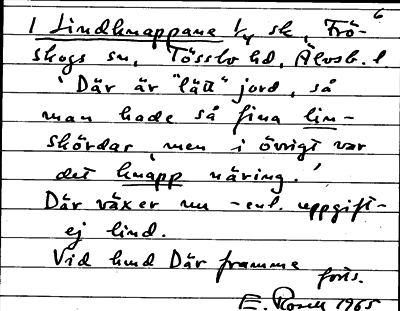 6
1 Lindknappane 1/4 sk, Frö-
skogs sn, Tössbo hd, Älvsb. l
'Där är "lätt" jord, så
man hade så fina lin-
skördar, men i övrigt var
det knapp näring.'
Där växer nu - enl. uppgift -
ej lind.
Vid hmd Där framme forts.
E. Rosell 1965